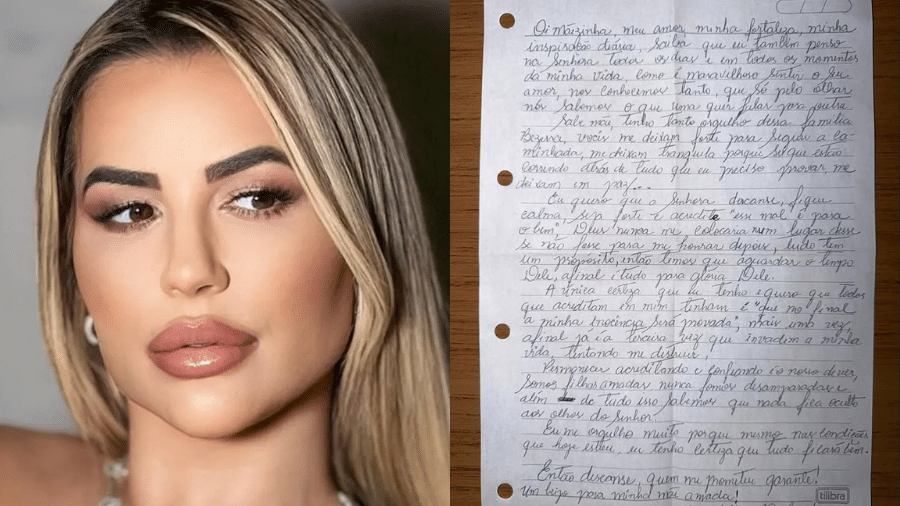 Oi Mãizinha, meu amor, minha fortaleza, minha
inspiração diária, saiba que eu também penso
na senhora todos os dias e em todos os momentos
da minha vida, como é maravilhoso sentir o seu
amor, nos conhecemos tanto, que só pelo olhar
nós sabemos o que uma quer falar para outra.
Sabe mãe, tenho tanto orgulho dessa família
Bezerra, vocês me deixam forte para seguir a ca-
minhada, me deixam tranquila porque sei que estão
correndo atrás de tudo que eu preciso provar, me
deixam em paz...
Eu quero que a senhora descanse, fique
calma, seja forte e acredite "esse mal é para
o bem", Deus nunca me colocaria num lugar desse
se não fosse para me honrar depois, tudo tem
um propósito, então temos que aguardar o tempo
Dele, afinal é tudo para glória Dele.
A única certeza que eu tenho e quero que todos
que acreditam em mim tenham é "que no final
a minha inocência será provada", mais uma vez,
afinal já é a terceira vez que invadem a minha
vida, tentando me destruir!
Permanecer acreditando e confiando é o nosso dever,
somos filhas amadas nunca fomos desamparadas e
além de tudo isso sabemos que nada fica oculto
aos olhos do Senhor.
Eu me orgulho muito porque mesmo nas condições
que hoje estou, eu tenho certeza que tudo ficará bem.
Então descanse, quem me prometeu garante!
Um beijo para minha mãe amada!
tilibra